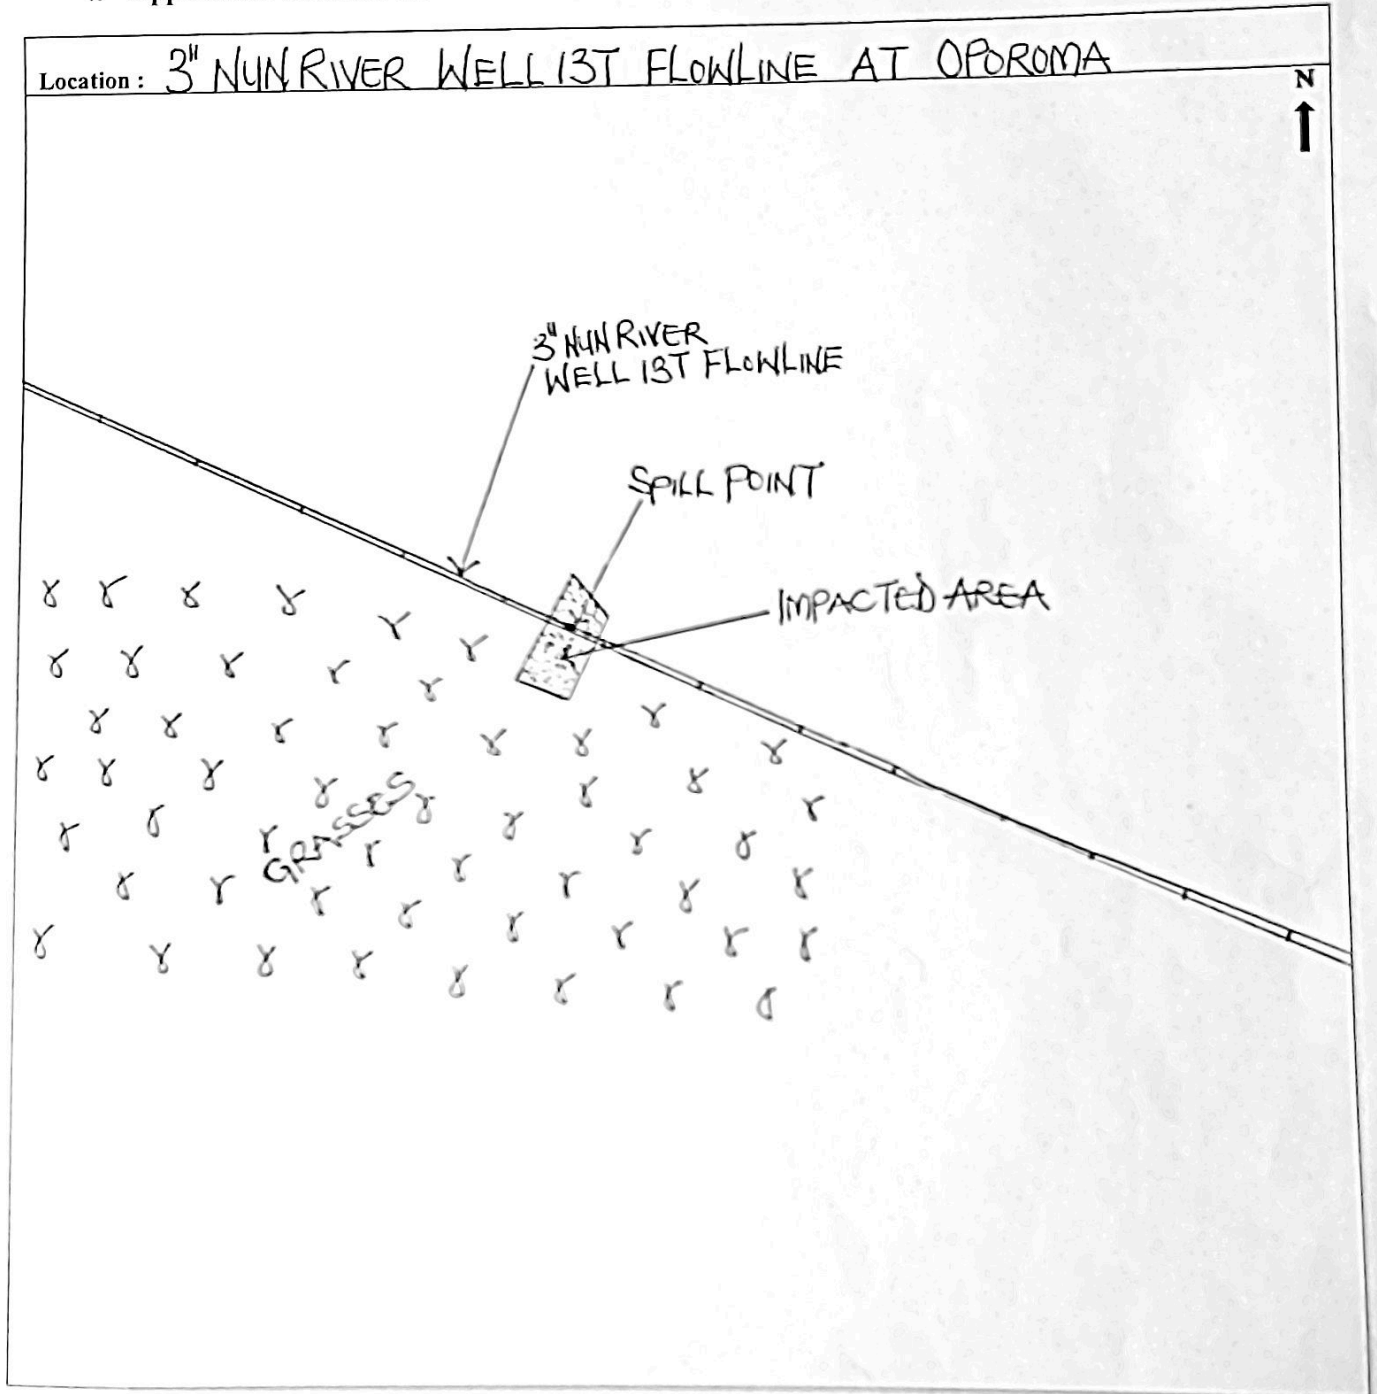 Location : 3" NUN RIVER WELL 13T FLOWLINE AT OPOROMA
N
3" NUN RIVER
WELL 13T FLOWLINE
SPILL POINT
IMPACTED AREA
GRASSES